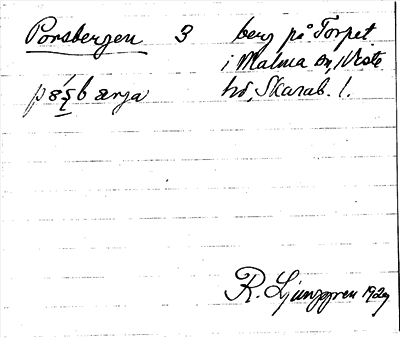 Porsbergen 3 berg på Torpet
i Malma sn, Viste
hd, Skarab. l.
R. Ljunggren 1929